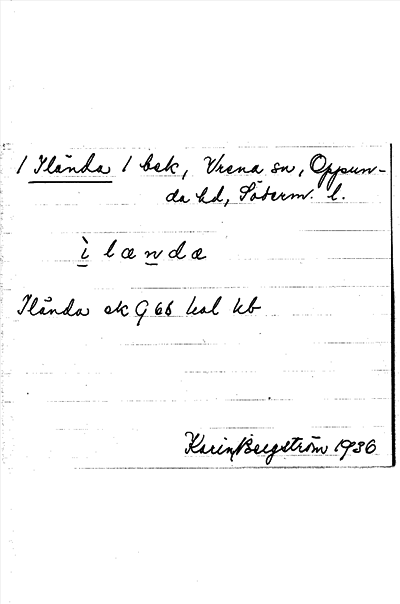 / Ilända / bsk, Vrena sn, Oppun-
da hd, Söderm. l.
ì lænda
Ilända ek G 66 kol kb
Karin Bergström 1936